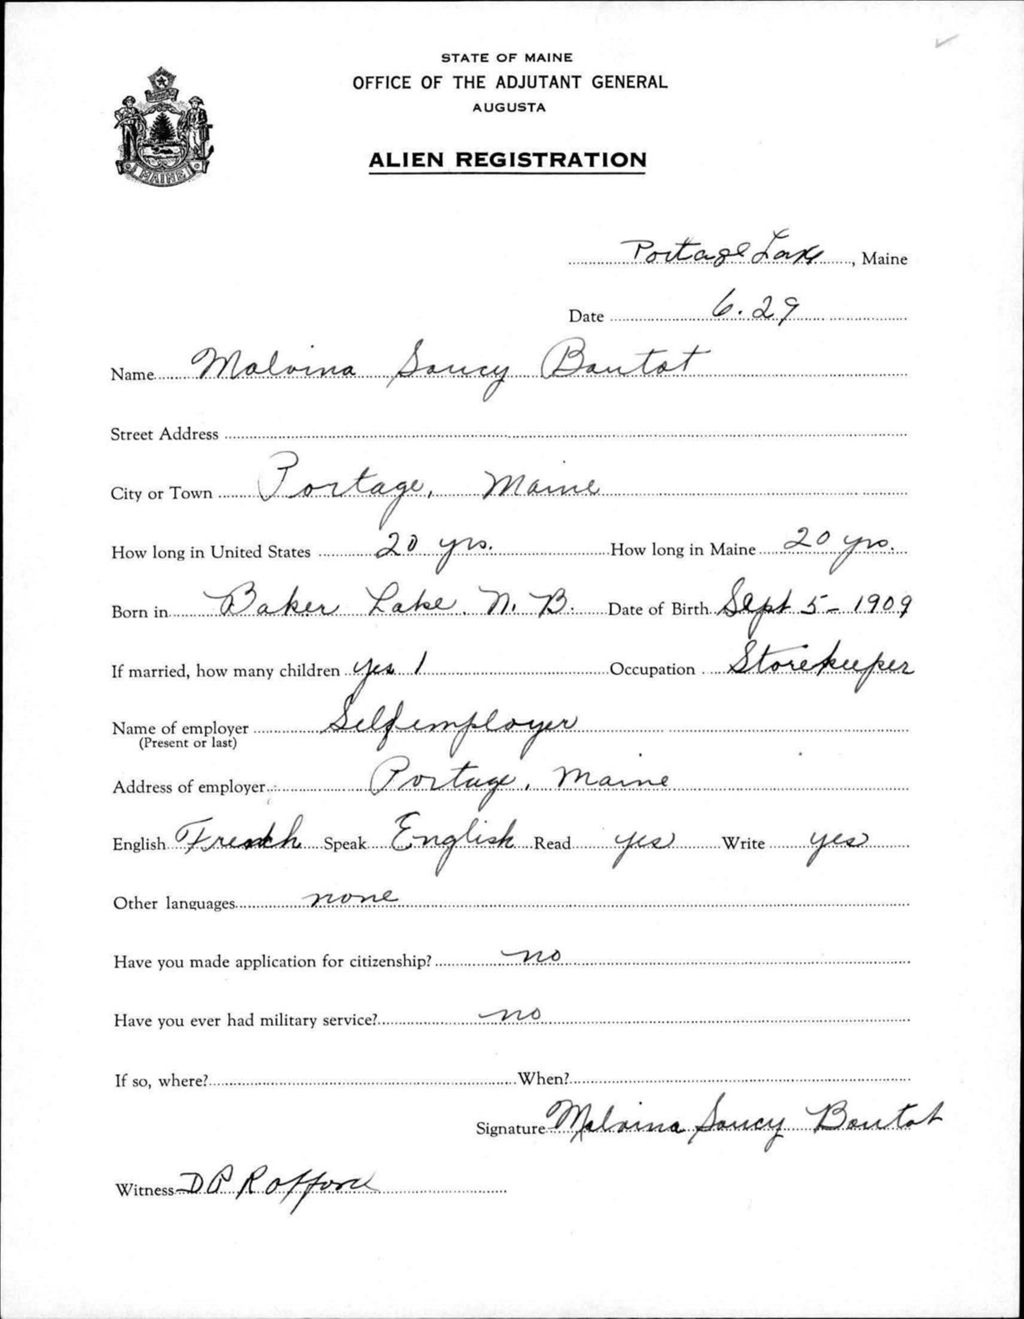 STATE OF MAINE
OFFICE OF THE ADJUTANT GENERAL
AUGUSTA
ALIEN REGISTRATION
MAINE
Portage Lake, Maine
Date 6.29
Name Malvina Soucy Boutot
Street Address
City or Town Portage, Maine
How long in United States 20 yrs. How long in Maine 20 yrs.
Born in Baker Lake. N. B. Date of Birth Sept 5- 1909
If married, how many children yes 1 Occupation Storekeeper
Name of employer Selfemployer
(Present or last)
Address of employer Portage, Maine
English French Speak English Read yes Write yes
Other languages none
Have you made application for citizenship? no
Have you ever had military service? no
If so, where? When?
Signature Malvina Soucy Boutot
Witness D P Rafford